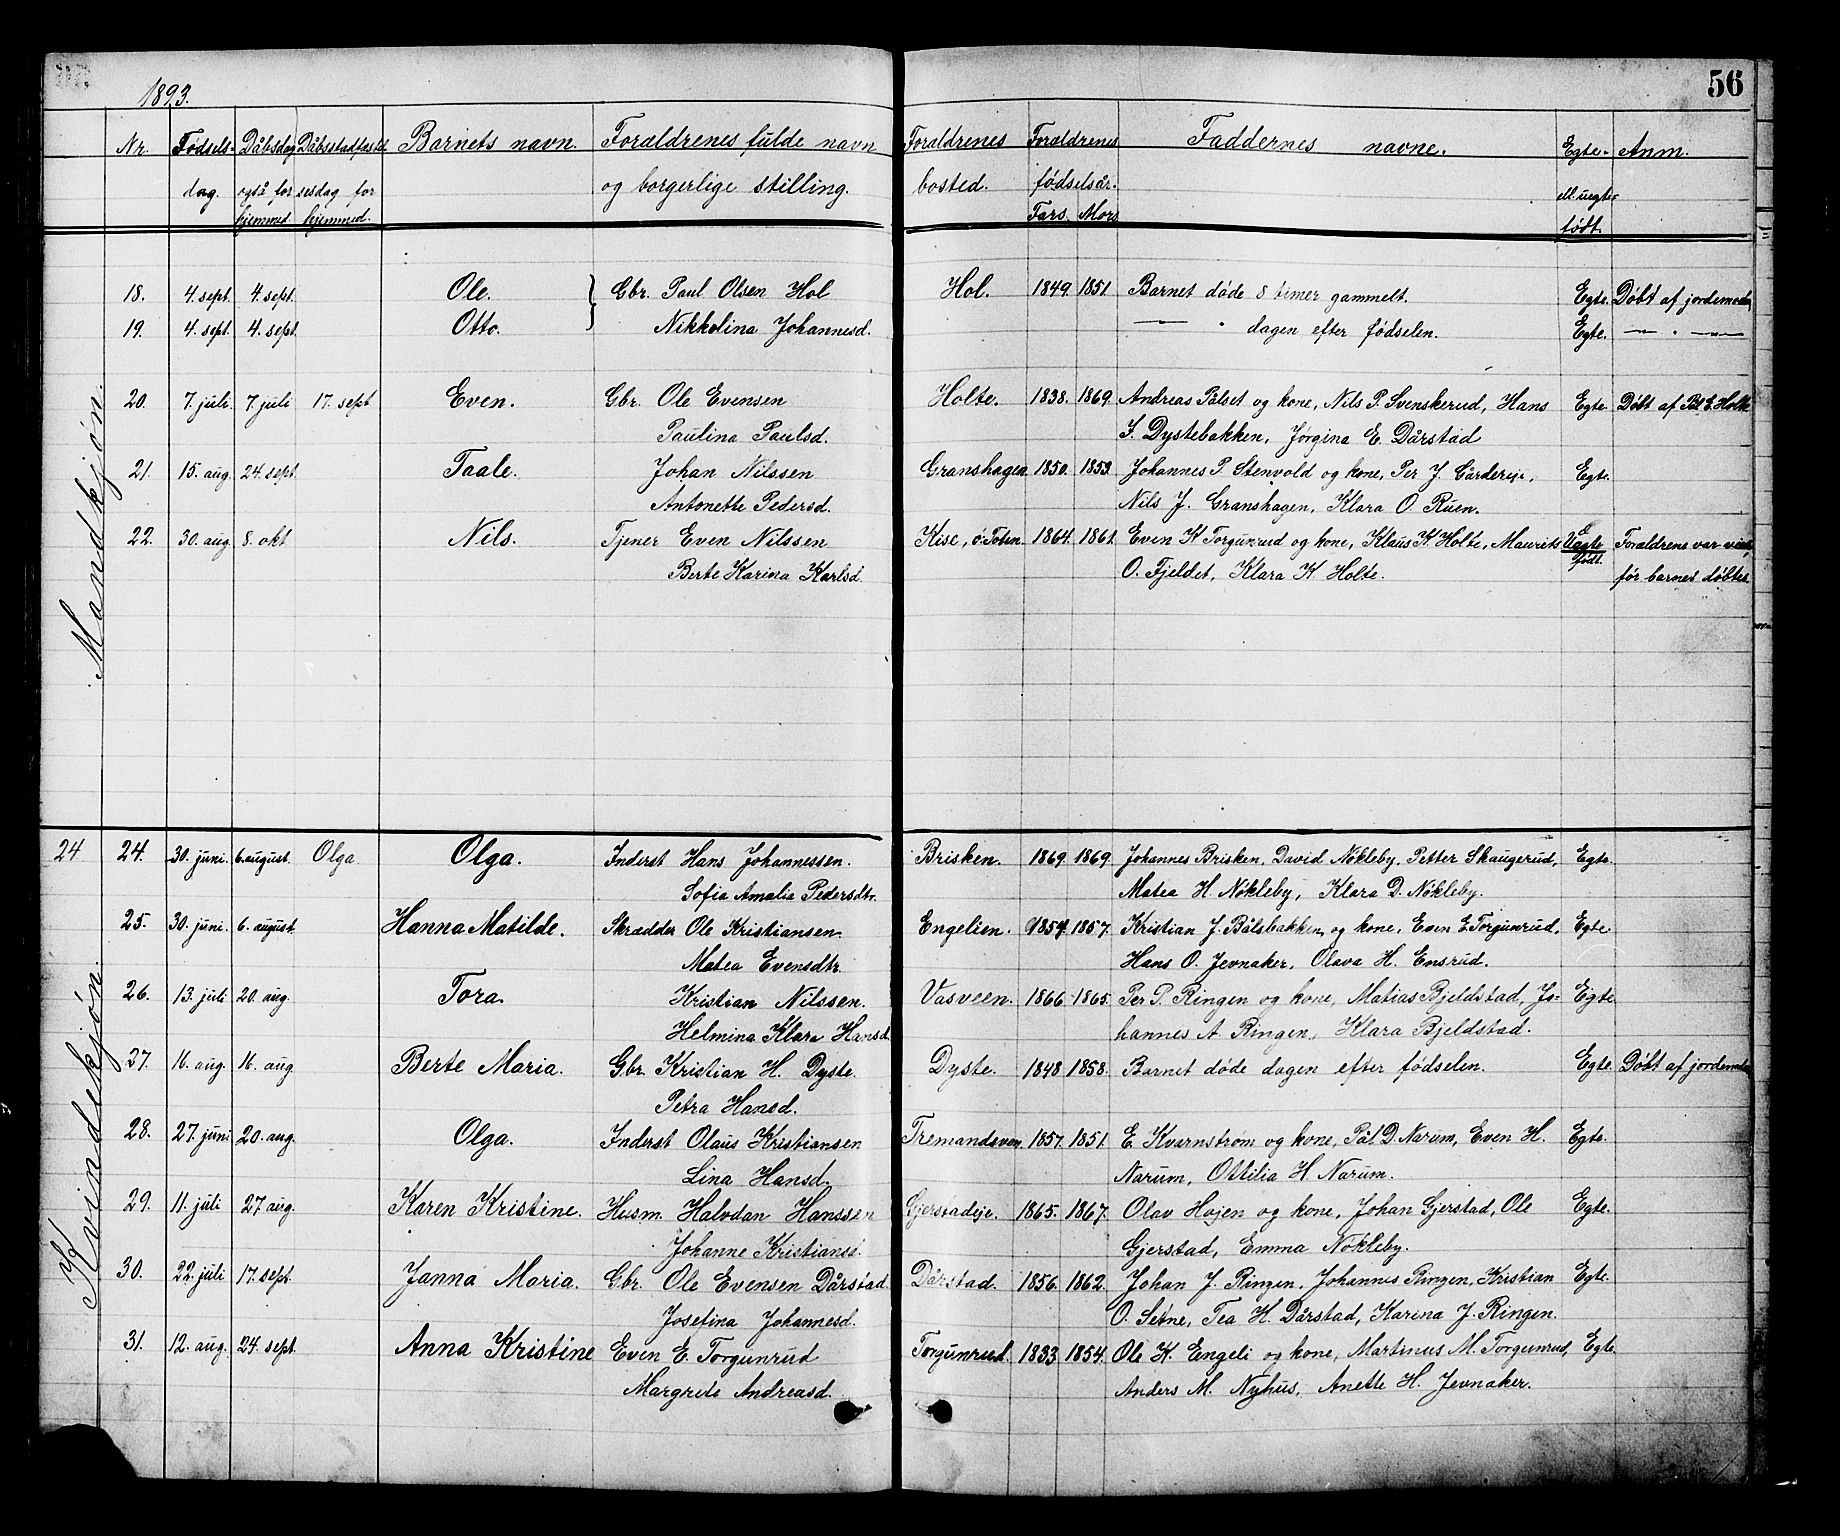 1893.
56
Nr. Fødsels- Dåbsdag Dåbsstadfæstel Barnets navn. Foraldrenes fulde navn Foraldrenes Foraldrenes Faddernes navne. Egte- Anm.
dag. også for sesdag for og borgerlige stilling. bosted. fødselsår. ell. uegte-
hjemmed hjemmed. Fars. Mors født.
Mandkjøn.
18. 4. sept. 4. sept. Ole. Gbr. Paul Olsen Hol Hol. 1849. 1851. Barnet døde 8 timer gammelt. Egte. Døbt af jordemod
19. 4. sept. 4. sept. Otto. Nikkolina Johannesd. — " dagen efter fødselen. Egte. — " —
20. 7. juli 7. juli 17. sept Even. Gbr. Ole Evensen Holte. 1838. 1869. Andreas Pålset og kone, Nils P. Svenskerud, Hans Egte. Døbt af Pål E. Holte
Paulina Paulsd. I. Dystebakken, Jørgina E. Dårstad
21. 15. aug. 24. sept. Taale. Johan Nilssen Granshagen. 1850. 1853. Johannes P. Stenvold og kone, Per J. Gårdereje, Egte.
Antonette Pedersd. Nils J. Granshagen, Klara O. Ruen.
22. 30. aug. 8. okt Nils. Tjener Even Nilssen Kise, ø. Toten. 1864. 1861. Even K Torgunrud og kone, Klaus K Holte, Maurits Uegte Foraldrene var viet,
Berte Karina Karlsd. O. Fjeldet, Klara K. Holte. født. før barnet døbtes
Kvindekjøn.
24 24. 30. juni. 6. august. Olga. Olga. Inderst Hans Johannessen. Brisken. 1869. 1869. Johannes Brisken, David Nøkleby, Petter Skaugerud, Egte.
Sofia Amalia Pedersdtr. Matea H. Nøkleby, Klara D. Nøkleby.
25. 30. juni. 6. august. Hanna Matilde. Skrædder Ole Kristiansen. Engelien. 1857. Kristian J. Bålsbakken og kone, Even E. Torgunrud, Egte
Matea Evensdtr. Hans O. Jevnaker, Olava H. Ensrud.
26. 13. juli 20. aug. Tora. Kristian Nilssen. Vasveen. 1866. 1865. Per P. Ringen og kone, Matias Bjeldstad, Jo- Egte
Helmina Klara Hansd. hannes A. Ringen, Klara Bjeldstad.
27. 16. aug. 16. aug Berte Maria. Gbr. Kristian H. Dyste. Dyste. 1848 1858. Barnet døde dagen efter fødselen. Egte. Døbt af jordemod
Petra Hansd.
28. 27. juni 20. aug. Olga. Inderst Olaus Kristiansen 1857. 1851. E. Kvarnstrøm og kone, Pål D. Narum, Even H. Egte.
Lina Hansd. Narum, Ottilia H. Narum.
29. 11. juli 27 aug. Karen Kristine. Husm. Halvdan Hanssen Gjerstadeje. 1865. 1867. Olav Højen og kone, Johan Gjerstad, Ole Egte.
Johanne Kristiansd. Gjerstad, Emma Nøkleby.
30. 22. juli 17. sept. Janna Maria. Gbr. Ole Evensen Dårstad. Dårstad. 1856. 1862. Johan J. Ringen, Johannes Ringen, Kristian Egte.
Josefina Johannesd. O. Setne, Tea H. Dårstad, Karina J. Ringen.
31. 12. aug. 24. sept. Anna Kristine Even E. Torgunrud Torgunrud. 1833 1854. Ole K. Engeli og kone, Martinus M. Torgunrud, Egte.
Margrete Andreasd. Anders M. Nyhus, Anette H. Jevnaker.